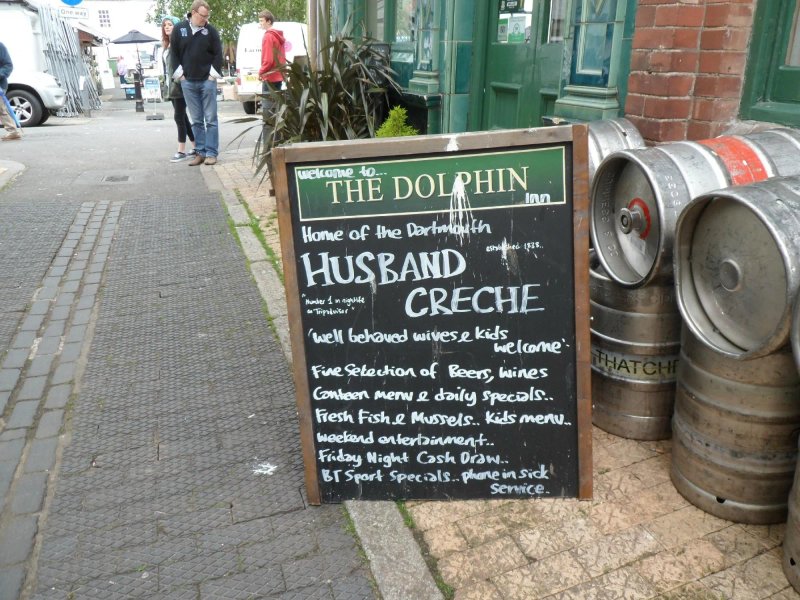 One way
welcome to...
THE DOLPHIN
inn
Home of the Dartmouth
established 1838..
HUSBAND
"Number 1 in nightlife
on Tripadvisor"
CRECHE
'well behaved wives & kids
welcome'
Fine Selection of Beers, Wines
Canteen menu & daily specials..
Fresh Fish & Mussels.. Kids menu..
Weekend entertainment..
Friday Night Cash Draw..
BT Sport Specials.. phone in sick
Service.
THATCHE